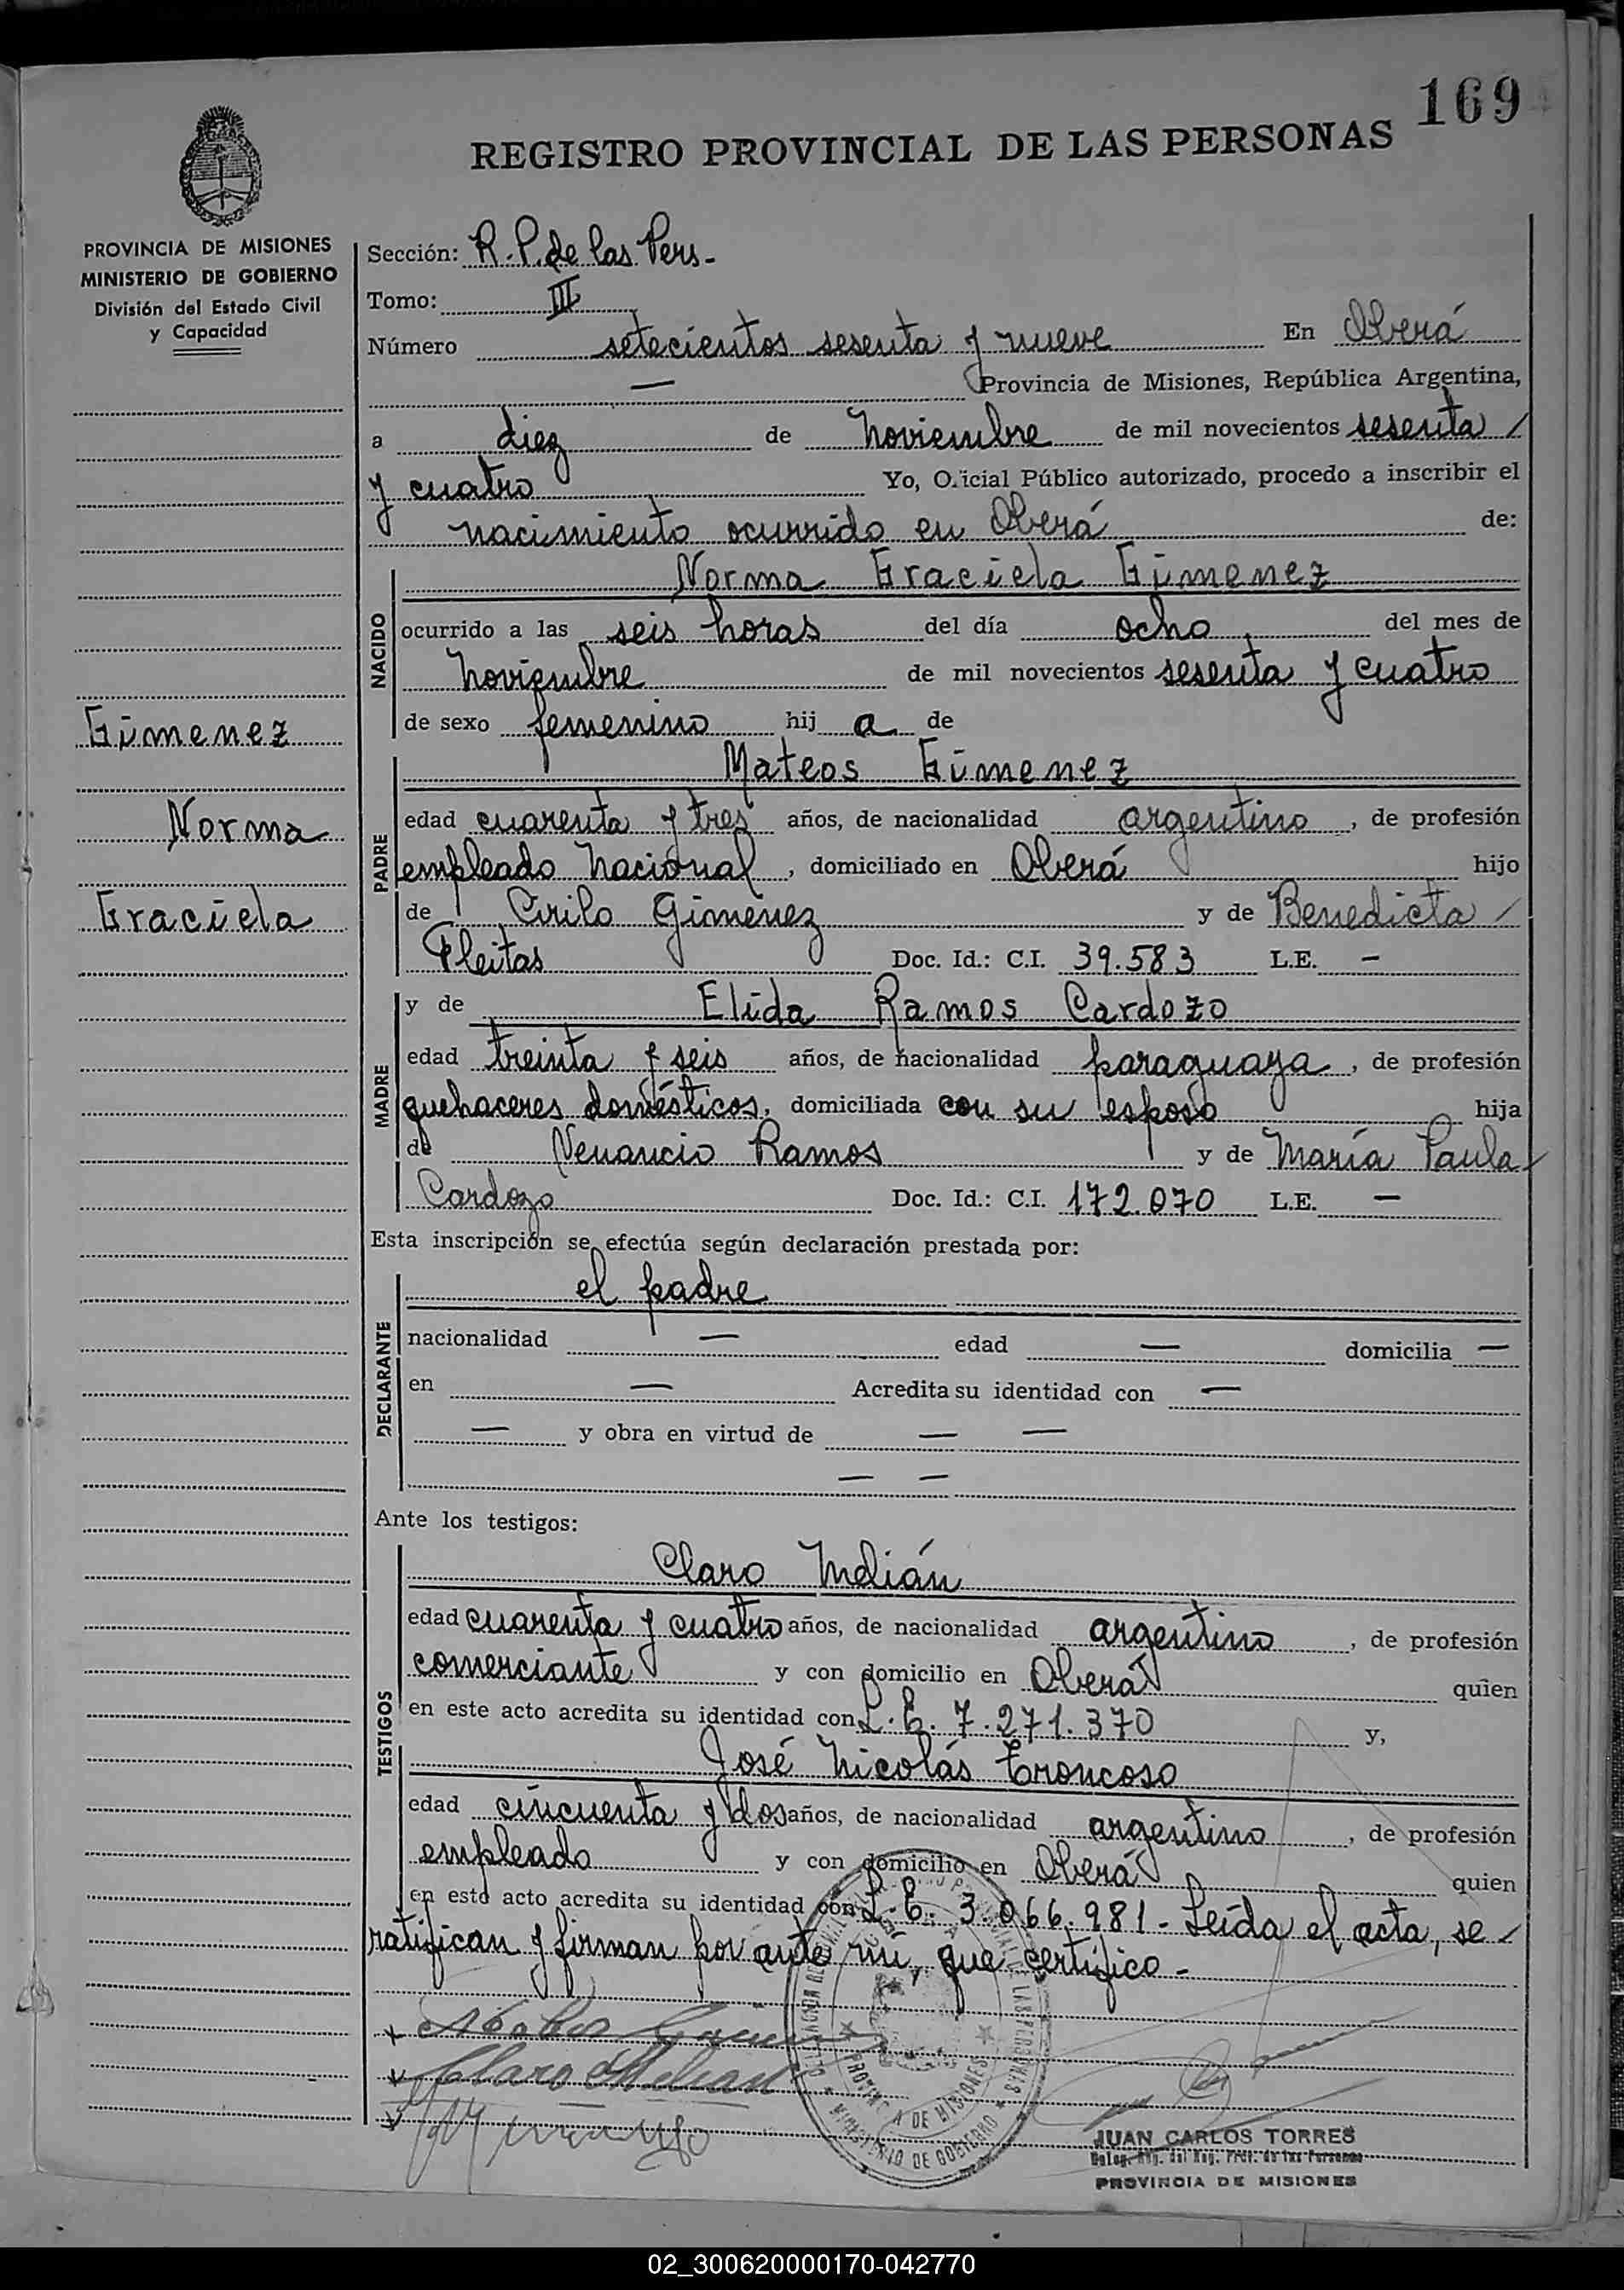 169
REGISTRO PROVINCIAL DE LAS PERSONAS
PROVINCIA DE MISIONES
MINISTERIO DE GOBIERNO
División del Estado Civil
y Capacidad
Sección: R. P. de las Pers.-
Tomo: III
Número setecientos sesenta y nueve En Oberá
— Provincia de Misiones, República Argentina,
a diez de noviembre de mil novecientos sesenta /
y cuatro Yo, Oficial Público autorizado, procedo a inscribir el
nacimiento ocurrido en Oberá de:
NACIDO
Norma Graciela Gimenez
ocurrido a las seis horas del día ocho del mes de
noviembre de mil novecientos sesenta y cuatro
de sexo femenino hij a de
Gimenez
Norma
Graciela
PADRE
Mateos Gimenez
edad cuarenta y tres años, de nacionalidad argentino, de profesión
empleado nacional, domiciliado en Oberá hijo
de Cirilo Giménez y de Benedicta /
Fleitas Doc. Id.: C.I. 39.583 L.E. —
MADRE
y de Elida Ramos Cardozo
edad treinta y seis años, de nacionalidad paraguaya, de profesión
quehaceres domésticos, domiciliada con su esposo hija
de Venancio Ramos y de María Paula /
Cardozo Doc. Id.: C.I. 172.070 L.E. —
Esta inscripción se efectúa según declaración prestada por:
DECLARANTE
el padre
nacionalidad — edad — domicilia —
en — Acredita su identidad con —
— y obra en virtud de — —
— —
Ante los testigos:
TESTIGOS
Claro Melián
edad cuarenta y cuatro años, de nacionalidad argentino, de profesión
comerciante y con domicilio en Oberá quien
en este acto acredita su identidad con L.E. 7.271.370 y,
José Nicolás Troncoso
edad cincuenta y dos años, de nacionalidad argentino, de profesión
empleado y con domicilio en Oberá quien
en este acto acredita su identidad con L.E. 3.066.981- Leída el acta, se /
ratifican y firman por ante mí, que certifico.-
Claro Melian
PROVINCIA DE MISIONES
MINISTERIO DE GOBIERNO
JUAN CARLOS TORRES
PROVINCIA DE MISIONES
02_300620000170-042770